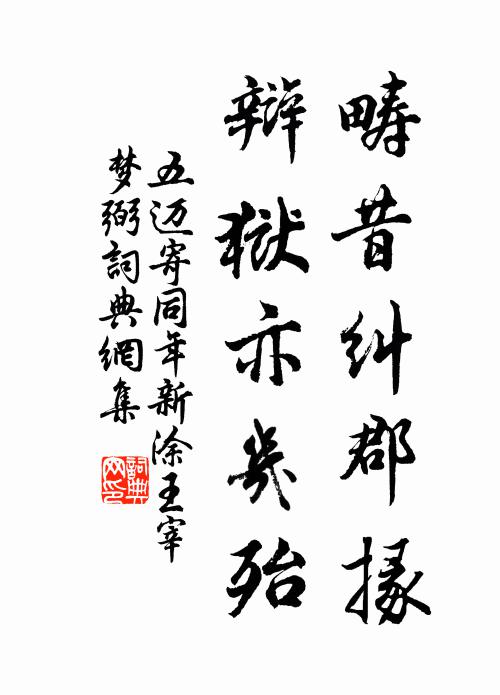 畴昔糾郡掾
辯獄亦幾殆
五迈寄同年新涂王宰
梦弼詞典網集
詞典网印